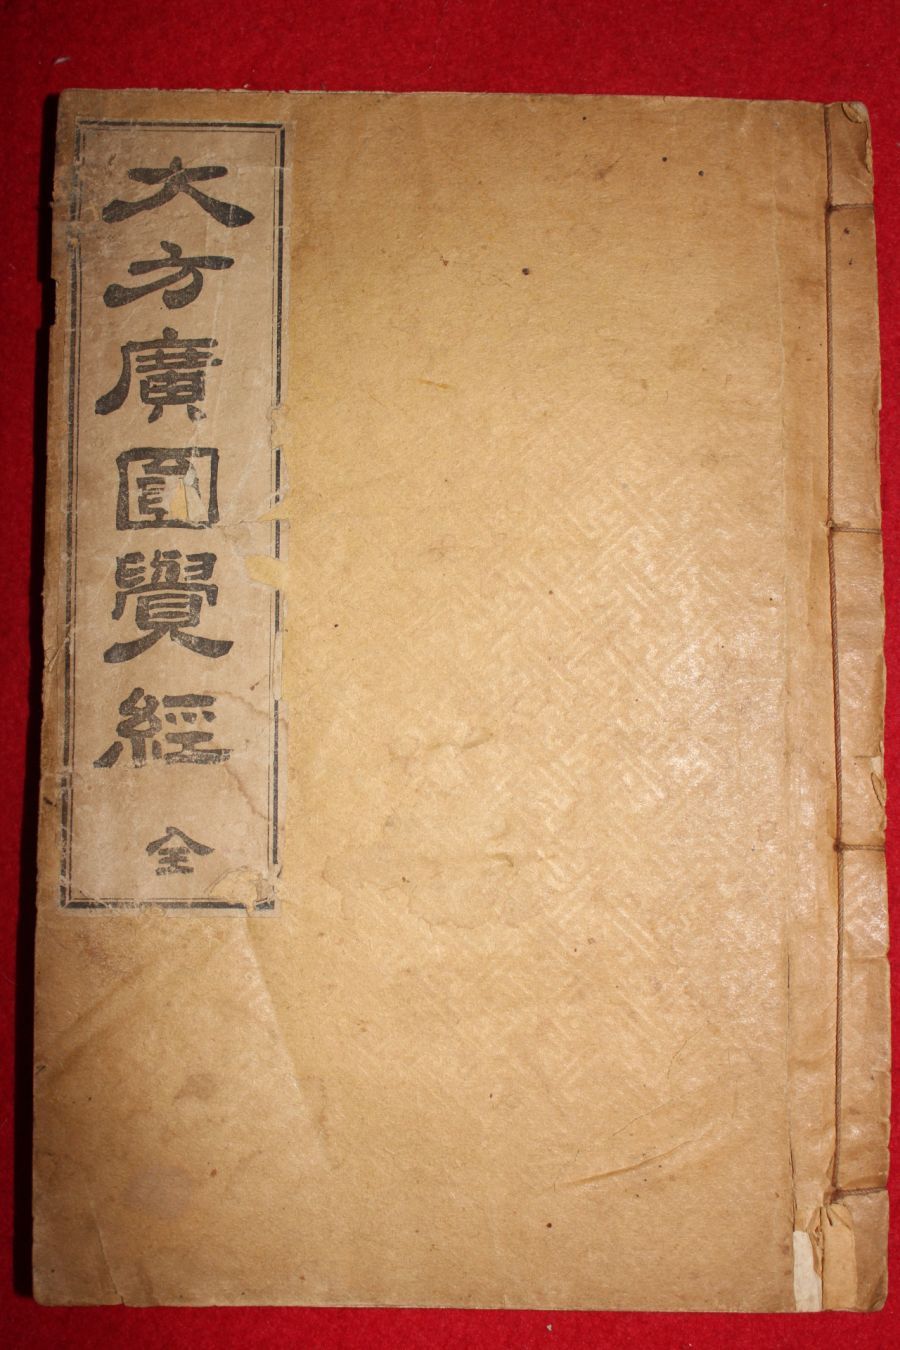 大方廣圓覺經 全